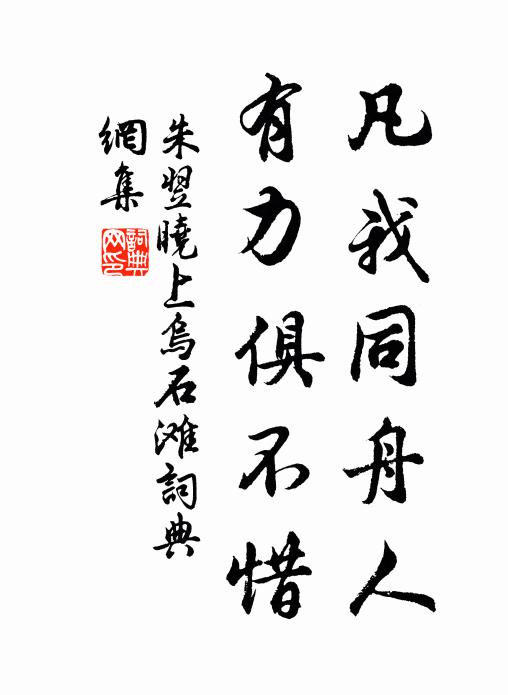 凡我同舟人
有力俱不惜
朱翌曉上烏石滩詞典
網集
詞典
网印